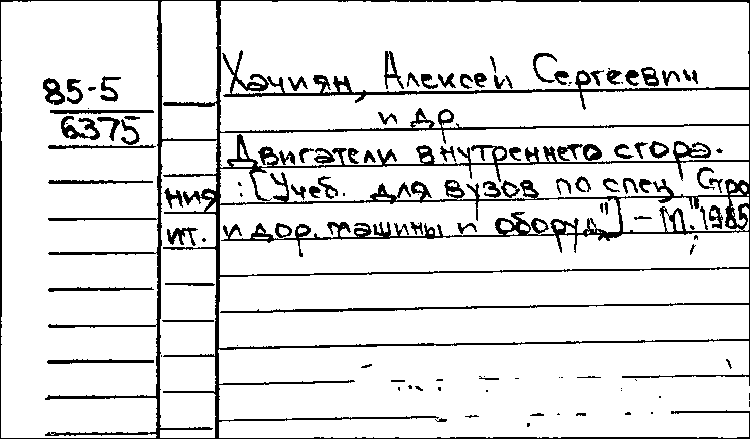 85-5
6375
Хачиян, Алексей Сергеевич
и др.
Двигатели внутреннего сгора-
ния : [Учеб. для вузов по спец. "Стро
ит. и дор. машины и оборуд."]. - М.; 1985